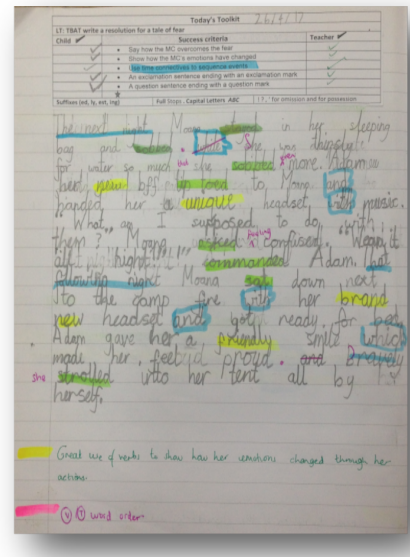 Today's Toolkit 26/4/17
LT: TBAT write a resolution for a tale of fear
Child Success criteria Teacher
Say how the MC overcomes the fear
Show how the MC's emotions have changed
Use time connectives to sequence events
An exclamation sentence ending with an exclamation mark
A question sentence ending with a question mark
Suffixes (ed, ly, est, ing) Full Stops . Capital Letters ABC
The next night Moana in her sleeping
bag and She was
for water so much that she sobbed even more. Adam
her new bff to Moana and
handed her a unique headset, music.
"What am I supposed to do with
them?" Moana asked feeling confused. "Wear it
all night!" commanded Adam. That
following night Moana sat down next
to the camp fire her brand
new headset and got ready for bed.
Adam gave her a friendly smile which
made her feel proud. and bravely
she strolled into her tent all by
herself.
Great use of verbs to show how her emotions changed through her
actions.
word order